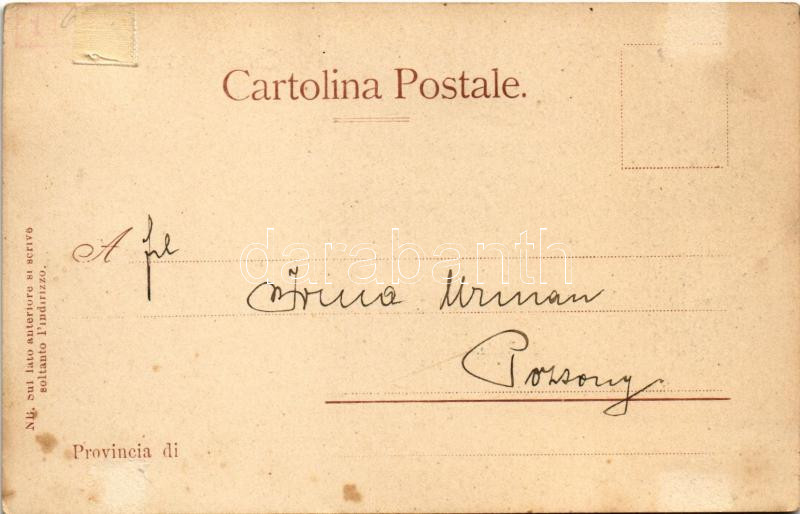 Cartolina Postale.
A frl
Irma Urman
Pozsony
Provincia di
NB. Sul lato anteriore si scrive
soltanto l'indirizzo.
darabanth